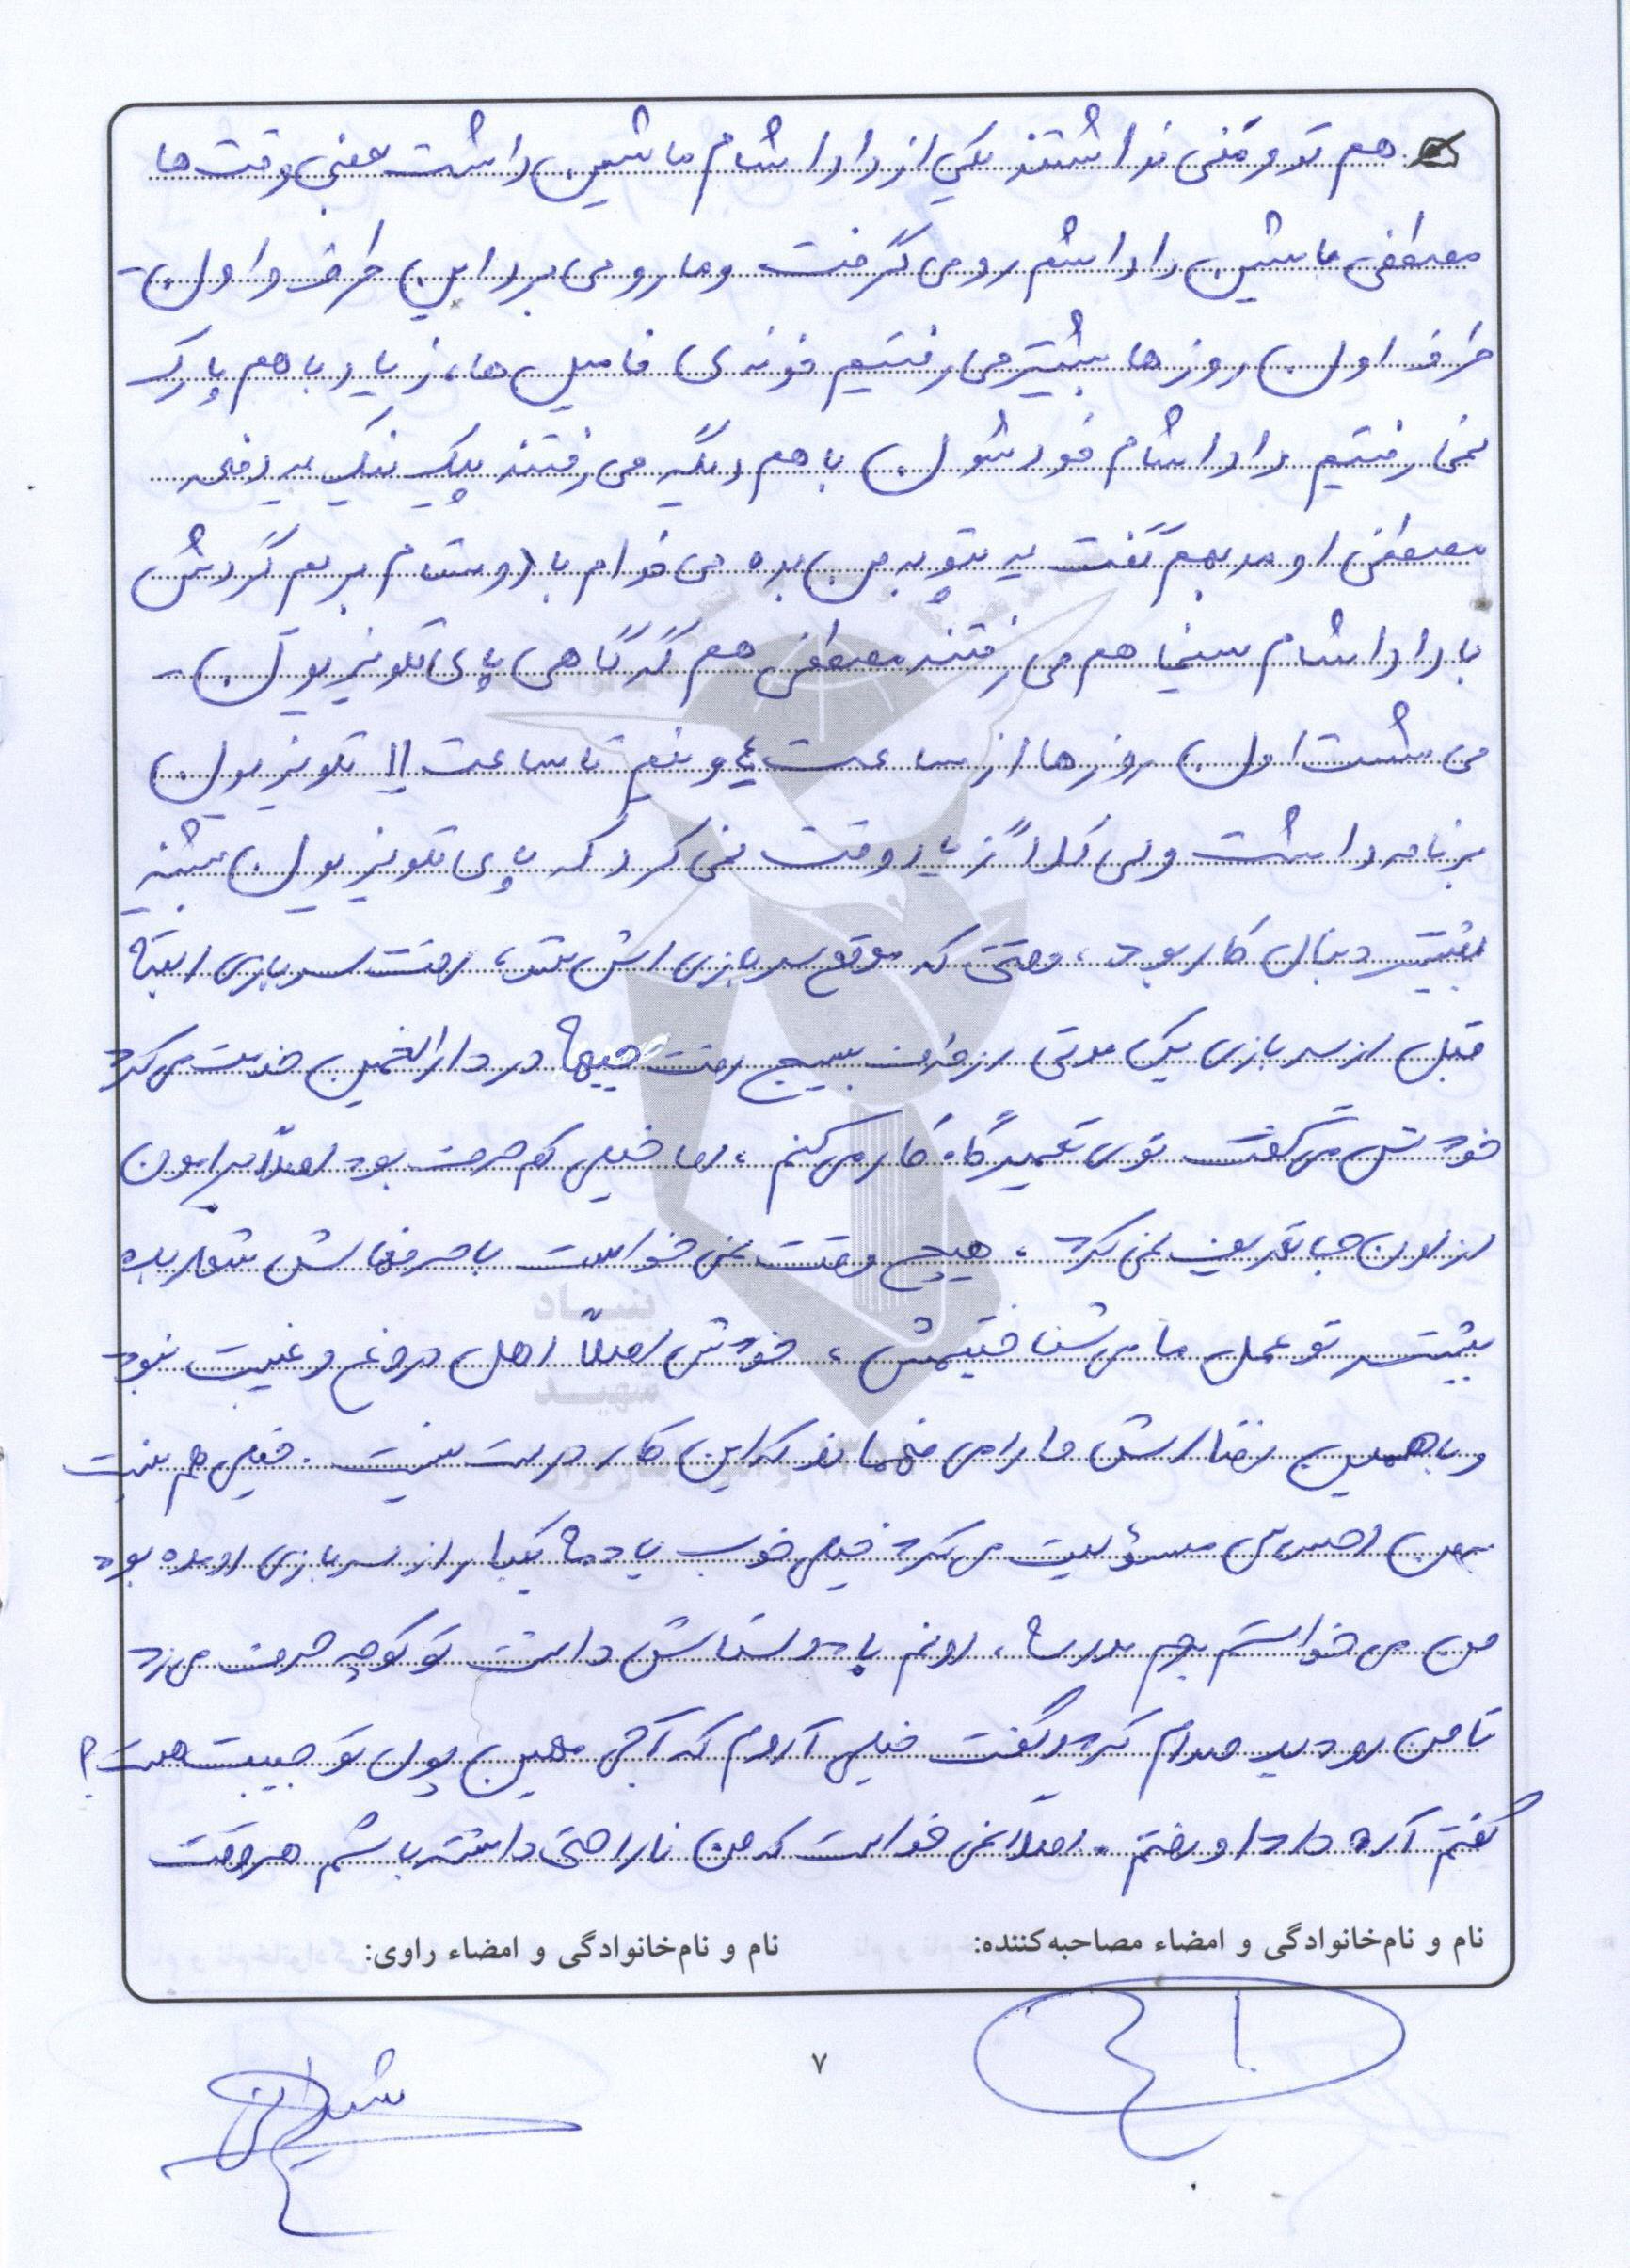 هم توقعی نداشتند یکی از داداشام ماشین داشت بعضی وقت ها
مصطفی ماشین داداشم رو می گرفت و ما رو می برد این طرف و اون
طرف اون روزها بیشتر می رفتیم خونه ی فامیل ها، زیاد با هم پارک
نمی رفتیم داداشام خودشون با هم دیگه می رفتند پیک نیک یه دفعه
مصطفی اومد بهم گفت یه پتو به من بده می خوام با دوستام بریم گردش
با داداشام سینما هم می رفتند مصطفی هم گه گاهی پای تلویزیون
می نشست اون روزها از ساعت ۴ و نیم تا ساعت ۱۱ تلویزیون
برنامه داشت ولی کلاً زیاد وقت نمی کرد که پای تلویزیون بشینه
بیشتر دنبال کار بود، وقتی که موقع سربازی اش شد، رفت سربازی البته
قبل از سربازی یک مدتی از طرف بسیج رفت جبهه در دارالخمین خدمت می کرد
خودش می گفت توی تعمیرگاه کار می کنم، اما خیلی کم حرف بود اصلاً برامون
از اون جا تعریف نمی کرد، هیچ وقت نمی خواست با حرفهاش شعار بده
بیشتر تو عمل ما می شناختیمش، خودش اصلاً اهل دروغ و غیبت نبود
و با همین رفتارش ما را می فهماند که این کار درست نیست. خیلی هم نسبت
بهمن احساس مسؤلیت می کرد خیلی خوب یادمه یکبار از سربازی اومده بود
من می خواستم برم مدرسه، اونم با دوستاش داشت تو کوچه حرف می زد
تا من رو دید صدام کرد و گفت خیلی آروم که آجی مهین پول تو جیبت هست؟
گفتم آره دادا و رفتم. اصلاً نمی خواست که من ناراحتی داشته باشم هر وقت
نام و نام‌خانوادگی و امضاء مصاحبه‌کننده:
نام و نام‌خانوادگی و امضاء راوی:
۷